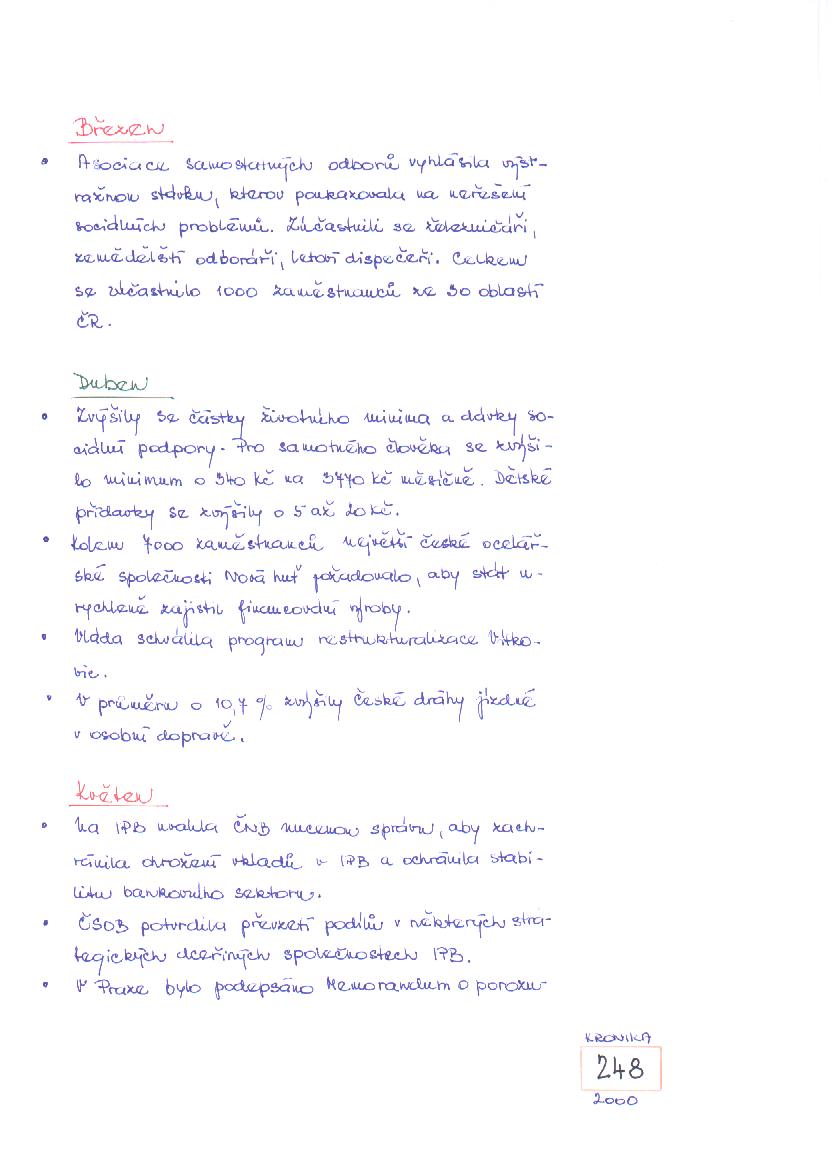 Březen
• Asociace samostatných odborů vyhlásila výst-
ražnou stávku, kterou poukazovala na neřešení
sociálních problémů. Zúčastnili se železničáři,
zemědělští odboráři, letoví dispečeři. Celkem
se zúčastnilo 1000 zaměstnanců ze 30 oblastí
ČR.
Duben
• Zvýšily se částky životního minima a dávky so-
ciální podpory. Pro samotného člověka se zvýši-
lo minimum o 340 kč na 3770 kč měsíčně. Dětské
přídavky se zvýšily o 5 až 20 kč.
• Kolem 7000 zaměstnanců největší české ocelář-
ské společnosti Nová huť požadovalo, aby stát u-
rychleně zajistil financování výroby.
• Vláda schválila program restrukturalizace Vítko-
vic.
• V průměru o 10,7 % zvýšily české dráhy jízdné
v osobní dopravě.
Květen
• Na IPB uvalila ČNB nucenou správu, aby zach-
ránila ohrožení vkladů v IPB a ochránila stabi-
litu bankovního sektoru.
• ČSOB potvrdila převzetí podílů v některých stra-
tegických dceřiných společnostech IPB.
• V Praze bylo podepsáno Memorandum o porozu-
KRONIKA
248
2000